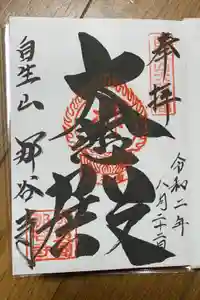 奉拝
令和二年
八月二十二日
大悲殿
自生山
那谷寺